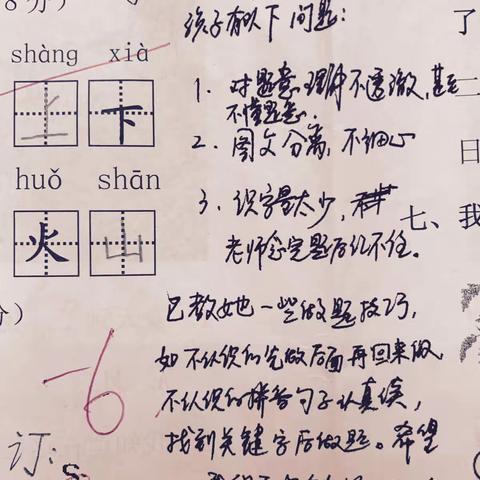 8分)
shàng xià
上 下
huǒ shān
火 山
分)
-6
订:
孩子有以下问题:
1. 对题意理解不透澈,甚至
不懂题意.
2. 图文分离,不细心
3. 识字量太少,
老师念完题后记不住。
已教她一些做题技巧,
如不认识的先做后面再回来做,
不认识的拼音句子认真读,
找到关键字后做题。希望
了
二
日
七、我